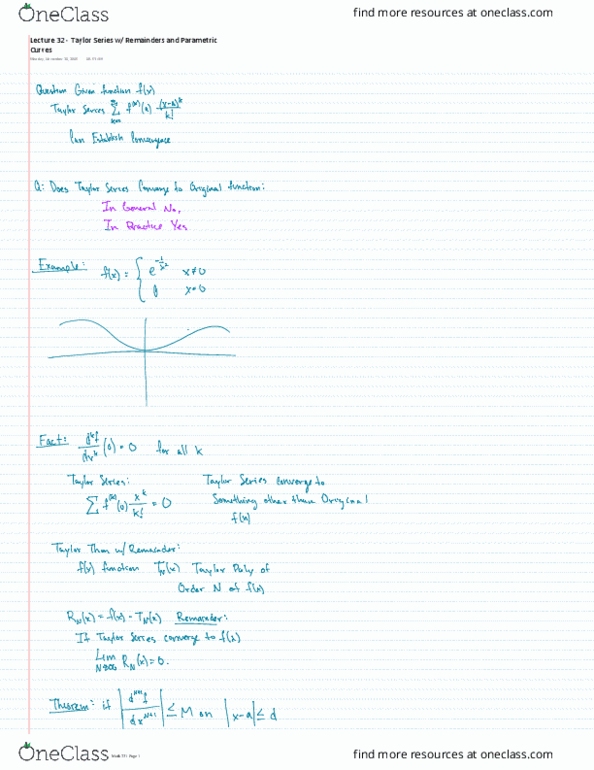 OneClass
find more resources at oneclass.com
Lecture 32 - Taylor Series w/ Remainders and Parametric
Curves
Question Given function f(x)
Taylor Series ∑ f^(k)(a) (x-a)^k / k!
Can Establish Convergence
Q: Does Taylor Series Converge to Original function:
In General No,
In Practice Yes
Example: f(x) = { e^(-1/x²) x≠0
0 x=0
Fact: d^k f / dx^k (0) = 0 for all k
Taylor Series: Taylor Series converge to
∑ f^(k)(0) x^k / k! = 0 Something other than Original
f(x)
Taylor Thm w/ Remainder:
f(x) function T_N(x) Taylor Poly of
Order N of f(x)
R_N(x) = f(x) - T_N(x) Remainder:
If Taylor Series converge to f(x)
Lim N→∞ R_N(x) = 0.
Theorem: if | d^(N+1) f / dx^(N+1) | ≤ M on |x-a| ≤ d
OneClass
Page 1
find more resources at oneclass.com